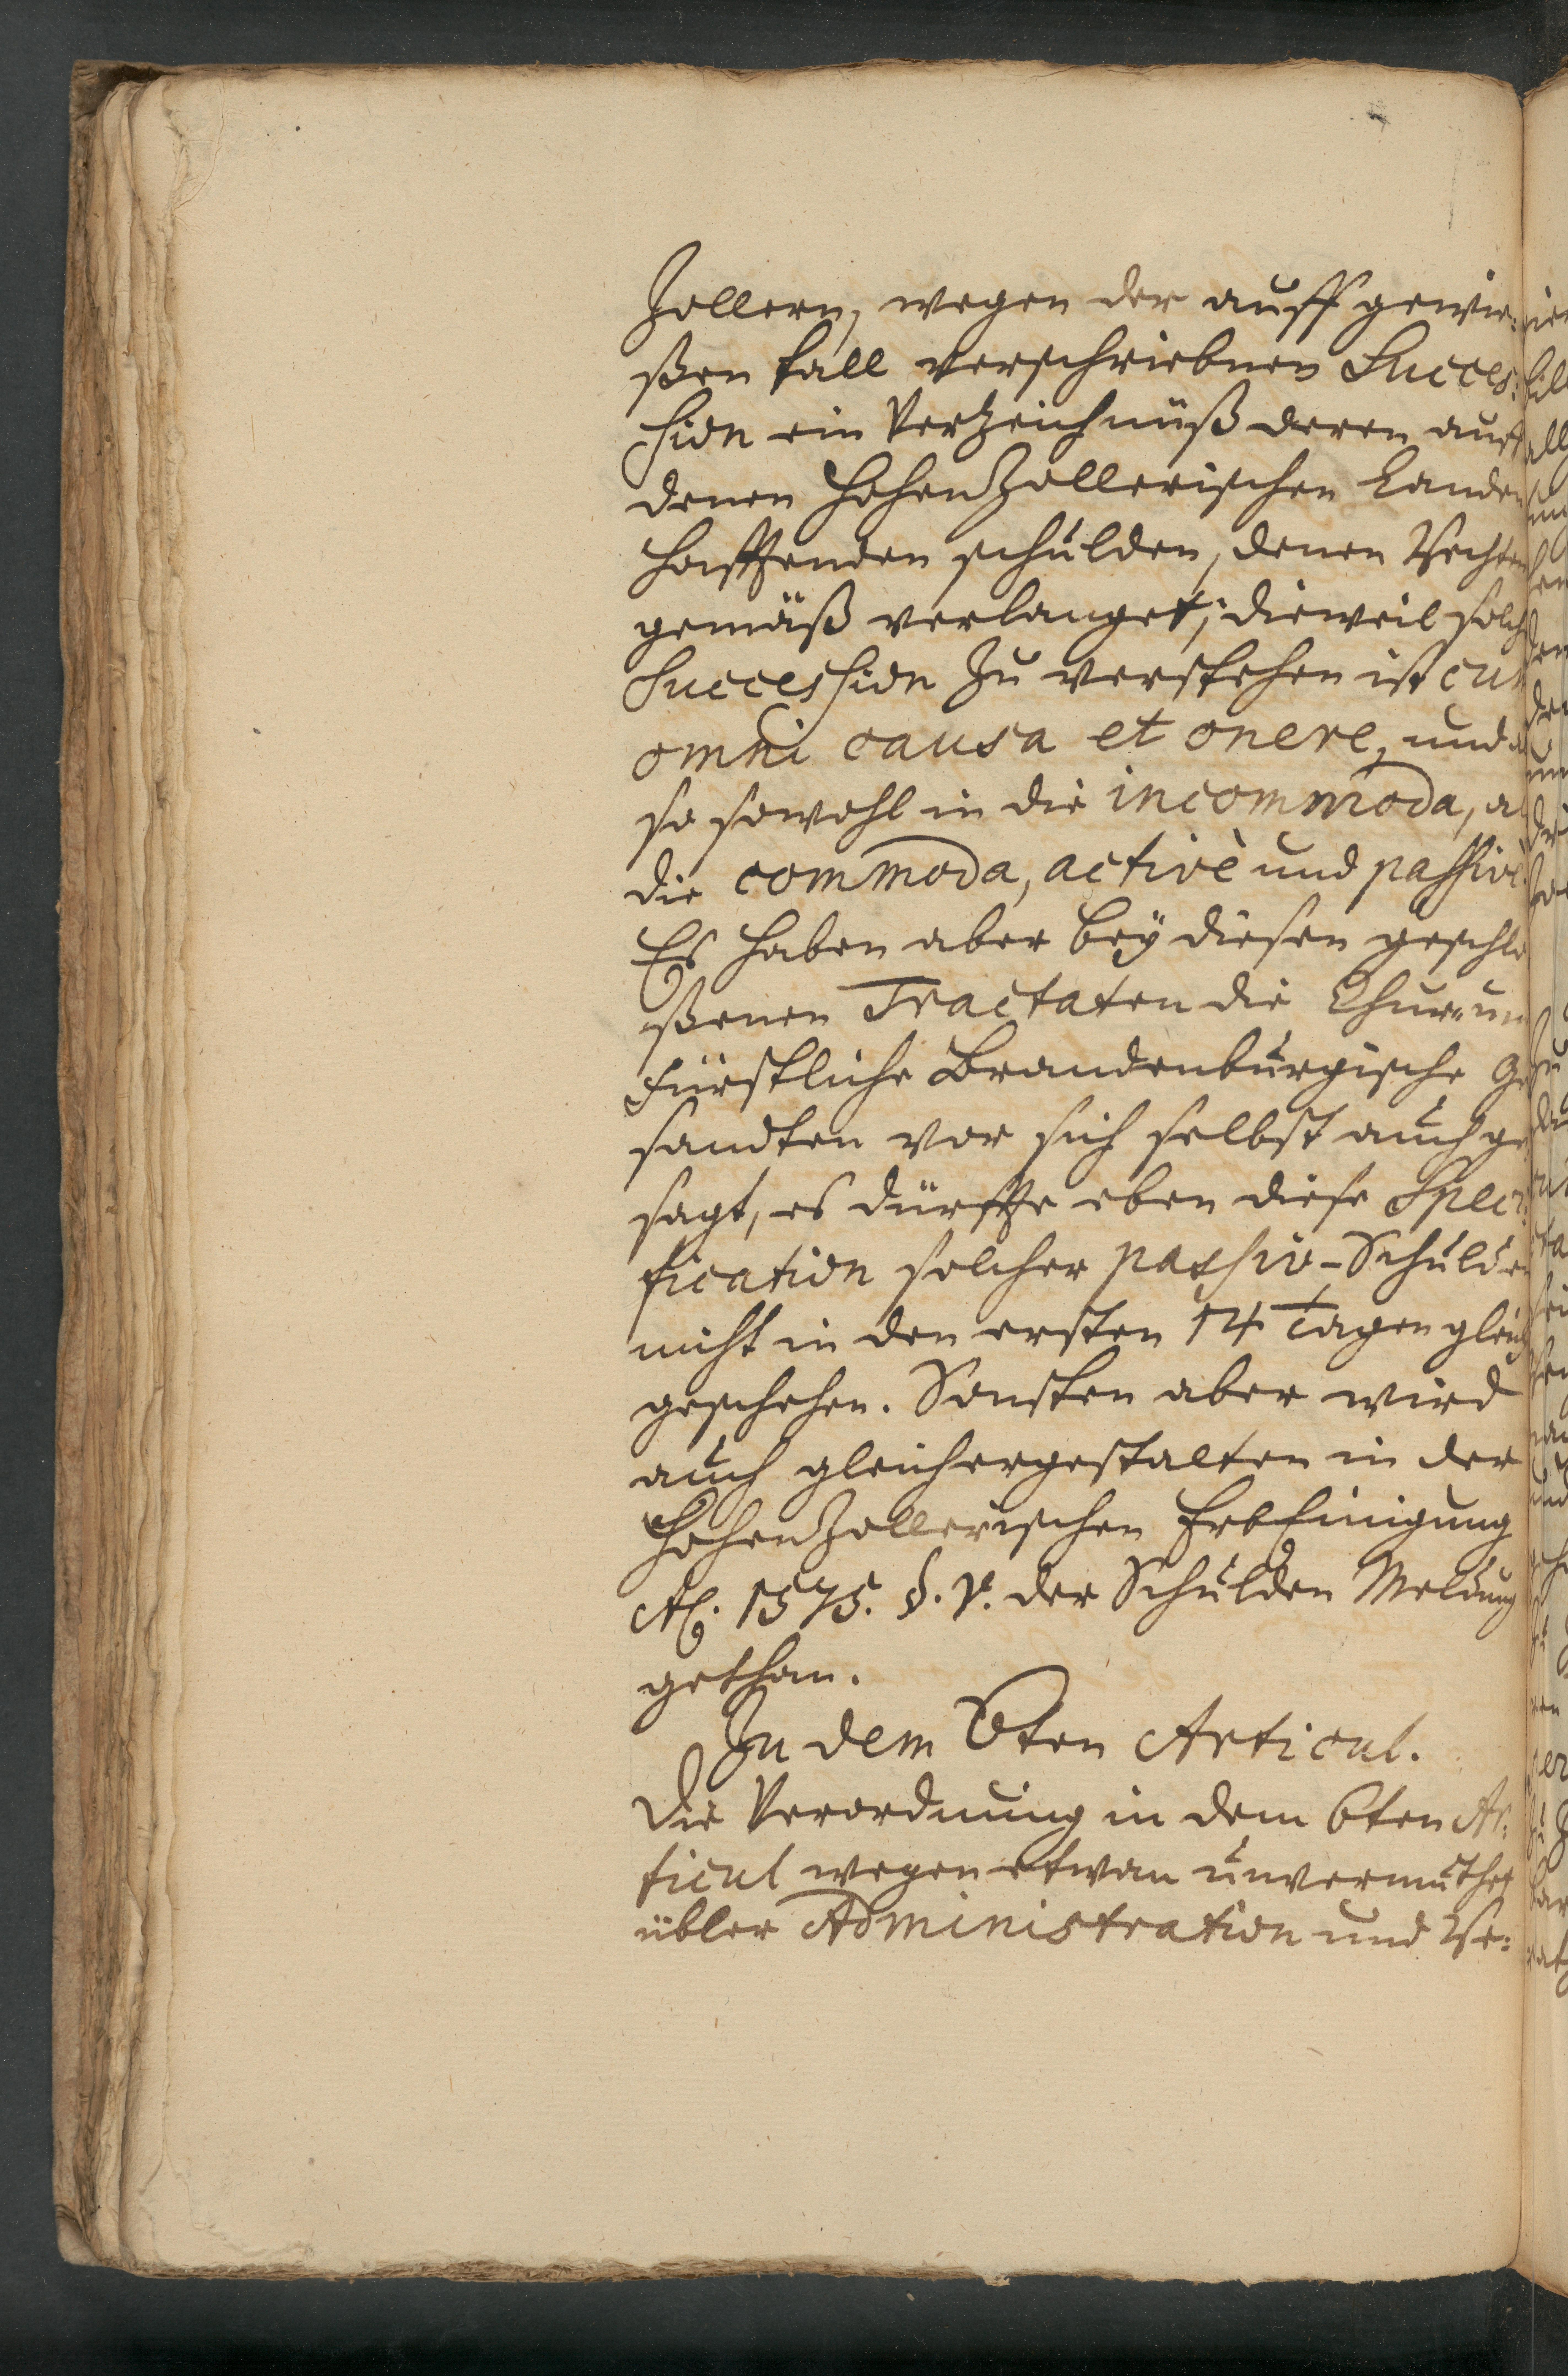 Zollern, wegen der auff gewie:
ßen fall verschriebnen Succes:
sion ein Vertzeichnüß deren auff
denen HohenZollerischen Landen
hafftenden schulden, denen Rechten
gemäß verlanget; dieweil solche
Succession zu verstehen ist cum
omni causa et onere, und
so sowohl in die incommoda, a
die commoda, activè und passivè.
Es haben aber beÿ diesen geschlo
ßenen Tractaten die Chur- un
Fürstliche Brandenburgische Ge
sandten vor sich selbst auch ge
sagt, es dürffte eben diese Speci
fication solcher passiv-Schulden
nicht in den ersten 14 Tagen gleich
geschehen. Sonsten aber wird
auch gleichergestalten in der
HohenZollerischen ErbEinigung
Aō. 1575. §. V. der Schulden Meldung
gethan.
In dem 6ten Articul.
Die Verordnung in dem 6ten Ar:
ticul wegen etwan unvermuthet
übler Administration und Ve: